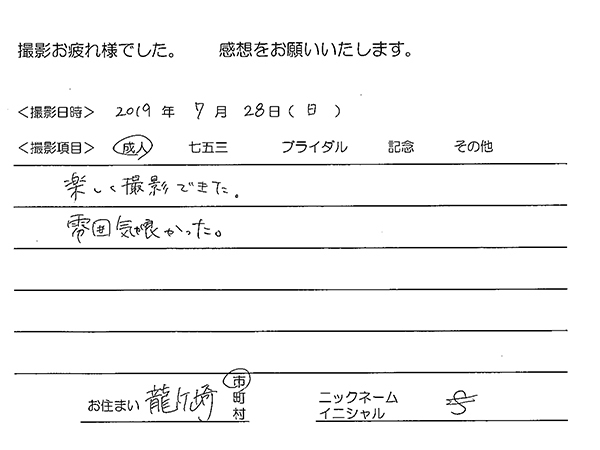 撮影お疲れ様でした。 感想をお願いいたします。
＜撮影日時＞ 2019 年 7 月 28 日 ( 日 )
＜撮影項目＞ 成人 七五三 ブライダル 記念 その他
楽しく撮影できた。
雰囲気良かった。
お住まい 龍ヶ崎 市 町 村
ニックネーム
イニシャル